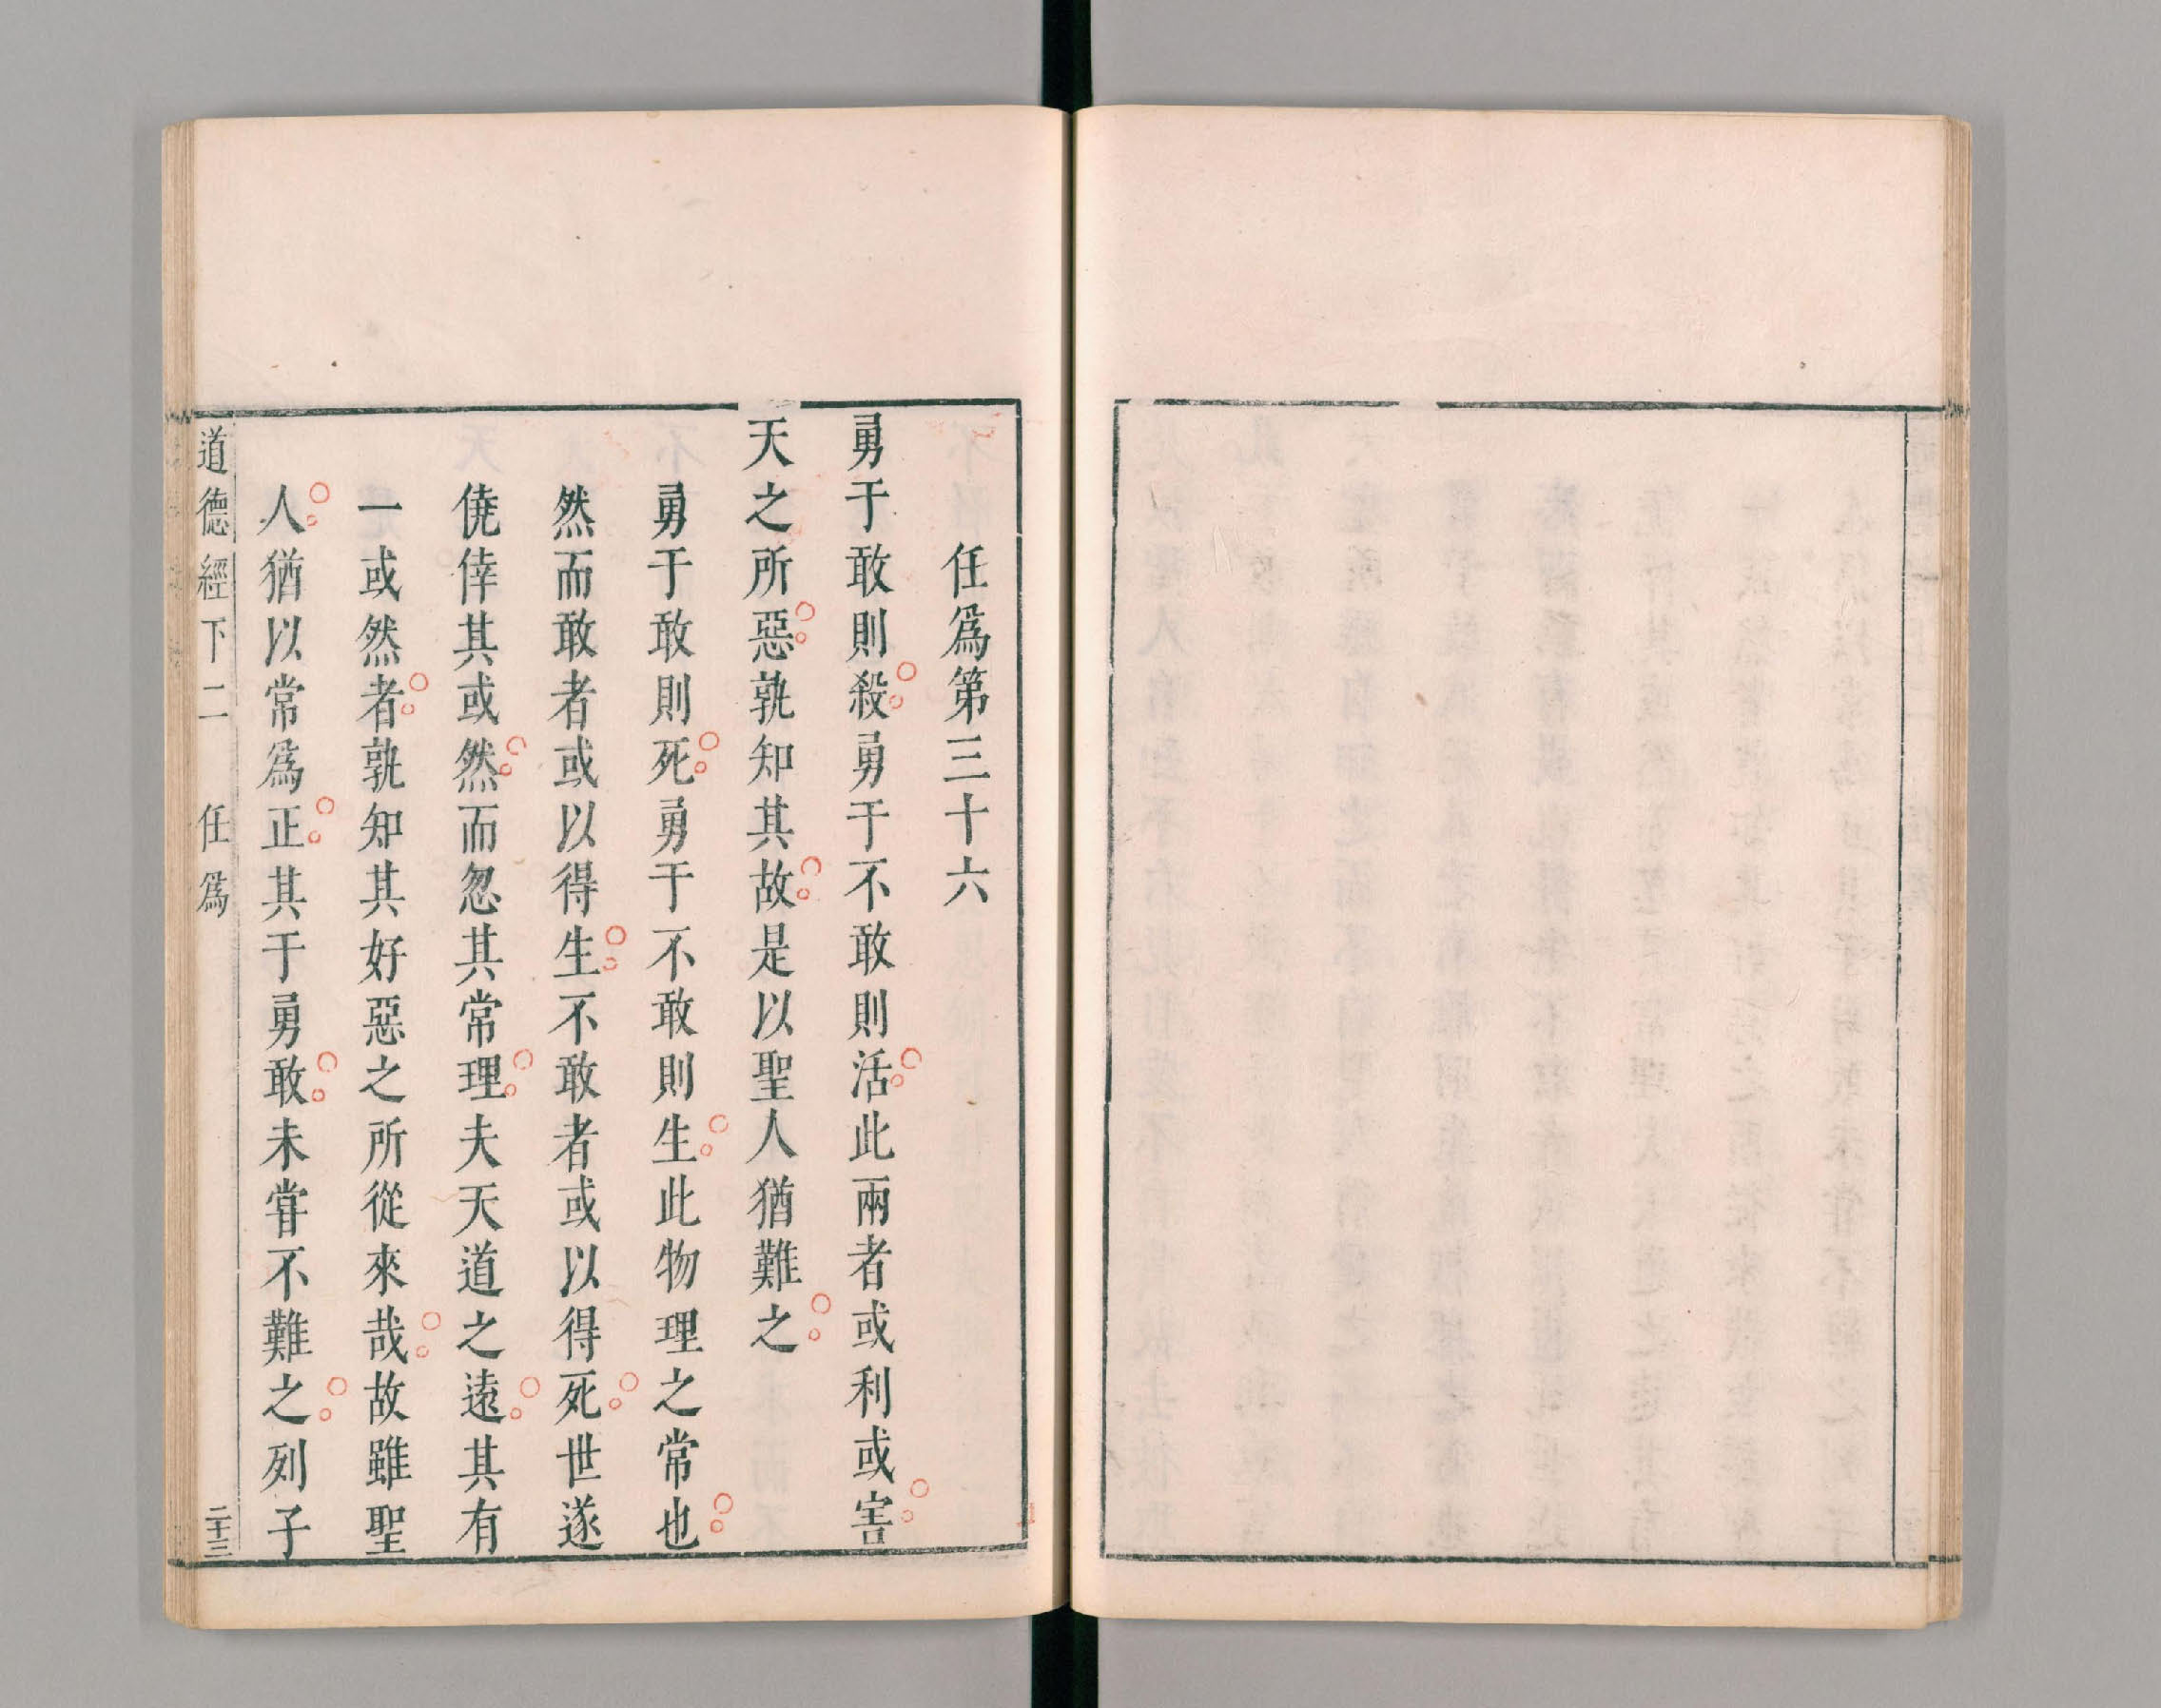 任爲第三十六
勇于敢則殺勇于不敢則活此兩者或利或害
天之所惡孰知其故是以聖人猶難之
勇于敢則死勇于不敢則生此物理之常也
然而敢者或以得生不敢者或以得死世遂
僥倖其或然而忽其常理夫天道之遠其有
一或然者孰知其好惡之所從來哉故雖聖
人猶以常爲正其于勇敢未嘗不難之列子
道德經下二 任爲 二十三